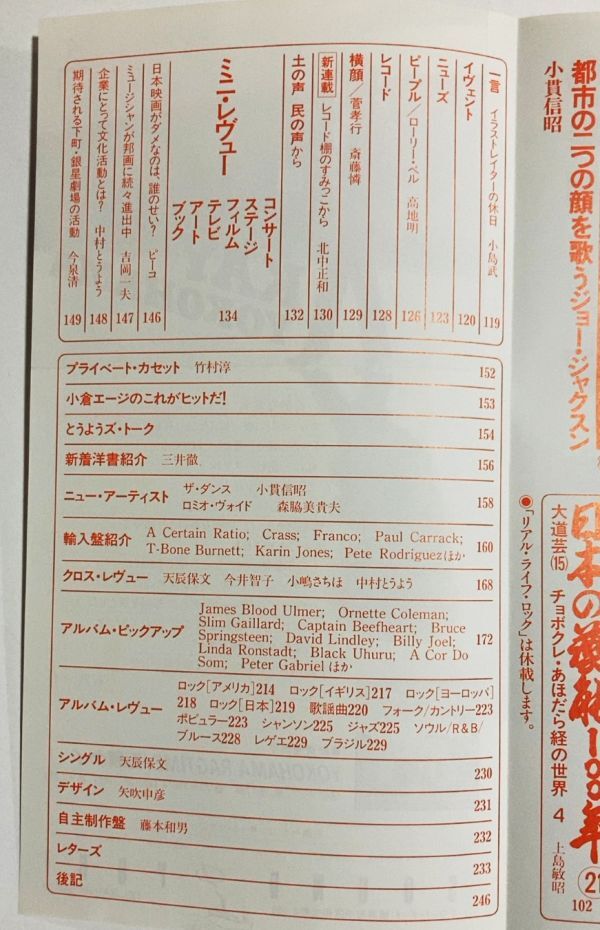 都市の二つの顔を歌うジョー・ジャクスン
小貫信昭
一言 イラストレイターの休日 小島武 119
イヴェント 120
ニューズ 123
ピープル／ローリー・ベル 高地明 126
レコード 128
横顔／菅孝行 斎藤憐 129
新連載 レコード棚のすみっこから 北中正和 130
土の声 民の声から 132
ミニ・レヴュー コンサート ステージ フィルム テレビ アート ブック 134
日本映画がダメなのは、誰のせい? ピーコ 146
ミュージシャンが邦画に続々進出中 吉岡一夫 147
企業にとって文化活動とは? 中村とうよう 148
期待される下町・銀星劇場の活動 今泉清 149
プライベート・カセット 竹村淳 152
小倉エージのこれがヒットだ! 153
とうようズ・トーク 154
新着洋書紹介 三井徹 156
ニュー・アーティスト ザ・ダンス 小貫信昭
ロミオ・ヴォイド 森脇美貴夫 158
輸入盤紹介 A Certain Ratio; Crass; Franco; Paul Carrack;
T-Bone Burnett; Karin Jones; Pete Rodriguezほか 160
クロス・レヴュー 天辰保文 今井智子 小嶋さちほ 中村とうよう 168
アルバム・ピックアップ James Blood Ulmer; Ornette Coleman;
Slim Gaillard; Captain Beefheart; Bruce
Springsteen; David Lindley; Billy Joel;
Linda Ronstadt; Black Uhuru; A Cor Do
Som; Peter Gabriel ほか 172
アルバム・レヴュー ロック[アメリカ]214 ロック[イギリス]217 ロック[ヨーロッパ]
218 ロック[日本]219 歌謡曲220 フォーク/カントリー223
ポピュラー223 シャンソン225 ジャズ225 ソウル/R&B/
ブルース228 レゲエ229 ブラジル229
シングル 天辰保文 230
デザイン 矢吹申彦 231
自主制作盤 藤本和男 232
レターズ 233
後記 246
●「リアル・ライフ・ロック」は休載します。
大道芸(15) チョボクレ・あほだら経の世界 4 上島敏昭
102